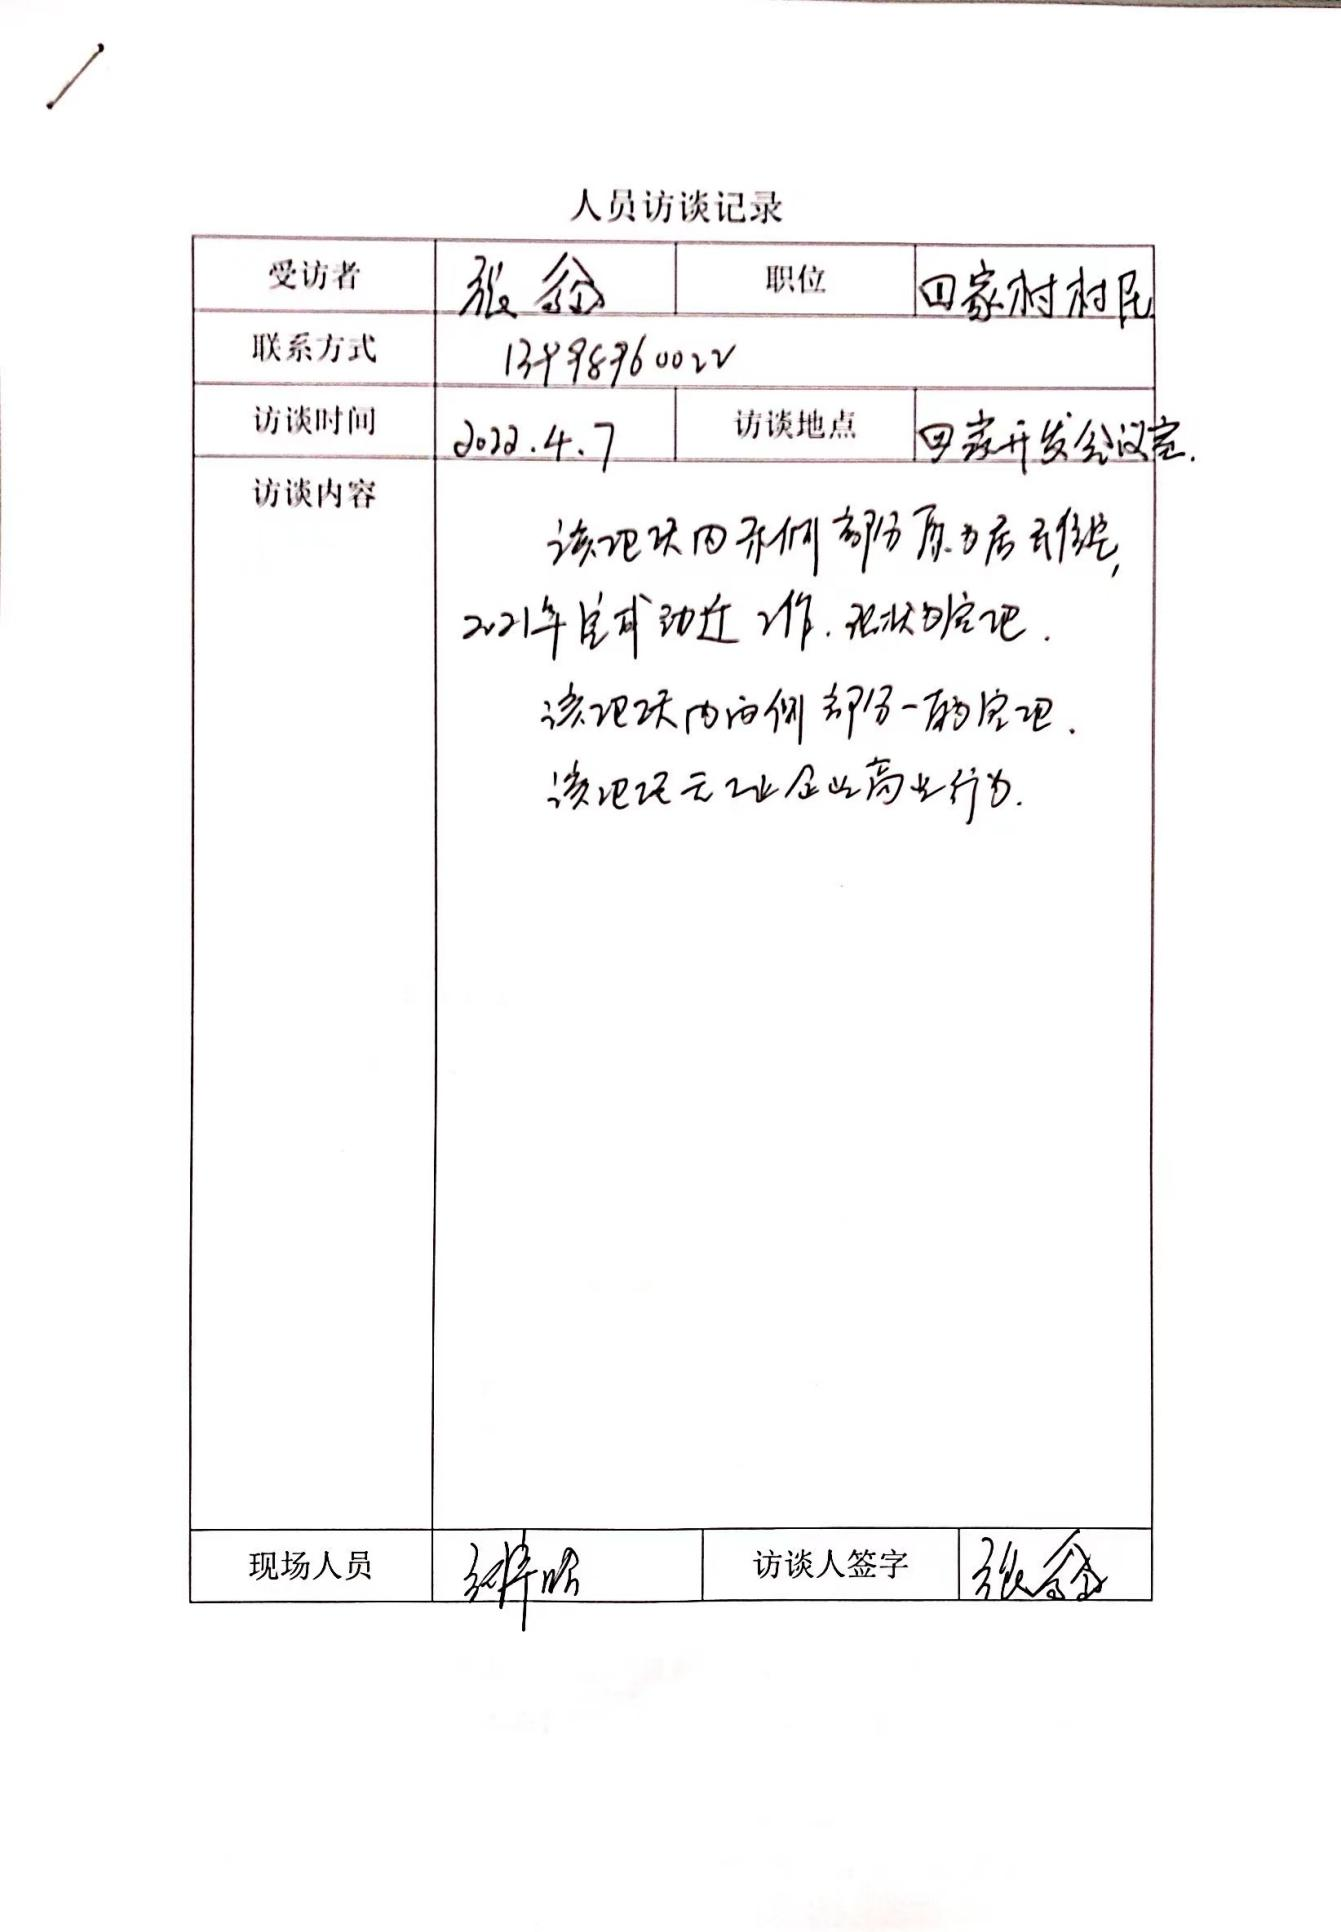 人员访谈记录
受访者 张鑫 职位 田家村村民
联系方式 13998960022
访谈时间 2022.4.7 访谈地点 田家开发会议室.
访谈内容
该地块内东侧部分原为居民住宅,
2021年完成动迁工作.现状为空地.
该地块内西侧部分一直为空地.
该地块无工业企业商业行为.
现场人员 访谈人签字 张鑫